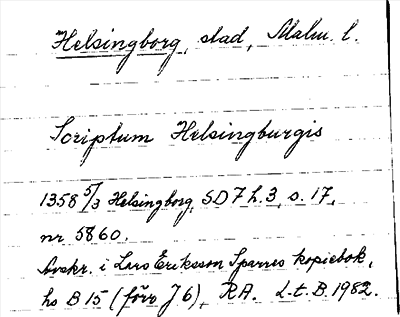 Helsingborg, stad, Malm. l.
Scriptum Helsingburgis
1358 5/3 Helsingborg, SD 7 h. 3, s. 17,
nr 5860.
Avskr. i Lars Eriksson Sparres kopiebok,
hs B 15 (förr J 6), RA. L-t. B. 1982.